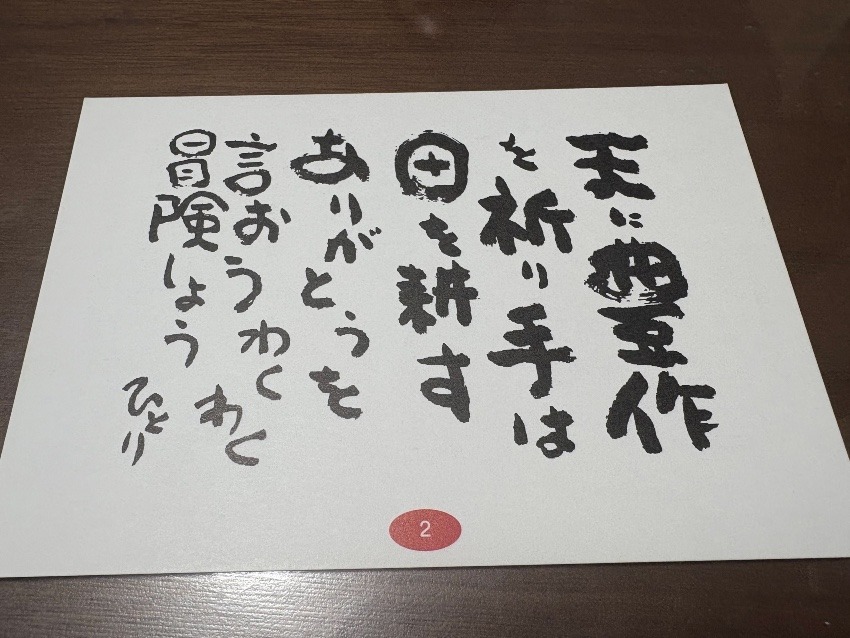 天に豊作
を祈り手は
田を耕す
ありがとうを
言おうわくわく
冒険しょう
ひとり
2